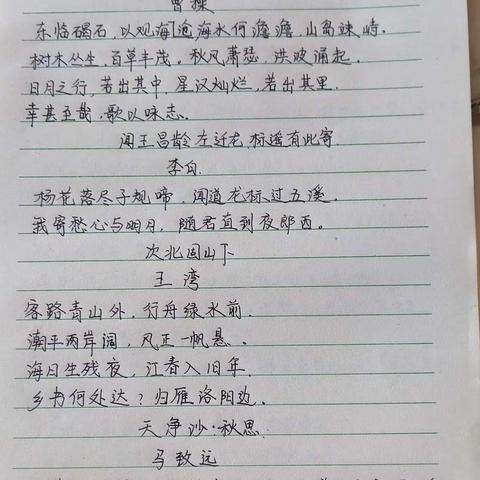 曹操
东临碣石，以观沧海，海水何澹澹，山岛竦峙。
树木丛生，百草丰茂。秋风萧瑟，洪波涌起。
日月之行，若出其中，星汉灿烂，若出其里。
幸甚至哉，歌以咏志。
闻王昌龄左迁龙标遥有此寄
李白
杨花落尽子规啼，闻道龙标过五溪。
我寄愁心与明月，随君直到夜郎西。
次北固山下
王湾
客路青山外，行舟绿水前.
潮平两岸阔，风正一帆悬。
海日生残夜，江春入旧年.
乡书何处达？归雁洛阳边.
天净沙·秋思
马致远